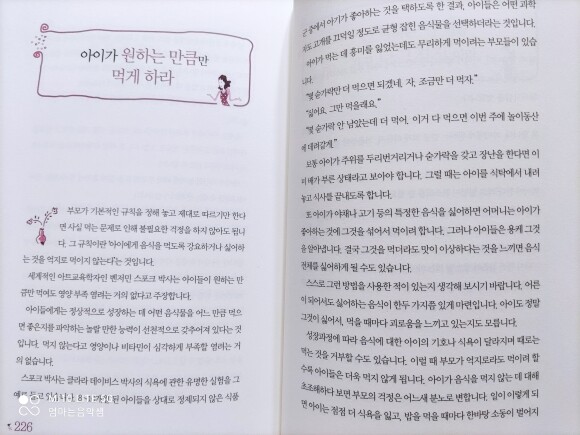 아이가 원하는 만큼만
먹게 하라
부모가 기본적인 규칙을 정해 놓고 제대로 따르기만 한다
면 사실 먹는 문제로 인해 불필요한 걱정을 하지 않아도 됩니
다. 그 규칙이란 '아이에게 음식을 먹도록 강요하거나 싫어하
는 것을 억지로 먹이지 않는다'는 것입니다.
세계적인 아동교육학자인 벤저민 스포크 박사는 아이들이 원하는 만
큼만 먹여도 영양 부족 염려는 거의 없다고 주장합니다.
아이들에게는 정상적으로 성장하는 데 어떤 음식물을 어느 만큼 먹으
면 좋은지를 파악하는 놀랄 만한 능력이 선천적으로 갖추어져 있다는 것
입니다. 먹지 않는다고 영양이나 비타민이 심각하게 부족할 염려는 거
의 없습니다.
스포크 박사는 클라라 데이비스 박사의 식욕에 관한 유명한 실험을 그
된 아이들을 상대로 정제되지 않은 식품
226
엄마는음악쌤
군 중에서 아기가 좋아하는 것을 택하도록 한 결과, 아이들은 어떤 과학
자도 고개를 끄덕일 정도로 균형 잡힌 음식물을 선택하더라는 것입니다.
아이가 먹는 데 흥미를 잃었는데도 무리하게 먹이려는 부모들이 있습
니다.
"몇 숟가락만 더 먹으면 되겠네. 자, 조금만 더 먹자."
"싫어요. 그만 먹을래요."
"몇 숟가락 안 남았는데 더 먹어. 이거 다 먹으면 이번 주에 놀이동산
에 데려갈게."
보통 아이가 주위를 두리번거리거나 숟가락을 갖고 장난을 한다면 이
미 배가 부른 상태라고 보아야 합니다. 그럴 때는 아이를 식탁에서 내려
놓고 식사를 끝내도록 합니다.
또 아이가 야채나 고기 등의 특정한 음식을 싫어하면 어머니는 아이가
좋아하는 것에 그것을 섞어서 먹이려 합니다. 그러나 아이들은 용케 그것
을 알아냅니다. 결국 그것을 먹더라도 맛이 이상하다는 것을 느끼면 음식
전체를 싫어하게 될 수도 있습니다.
스스로 그런 방법을 사용한 적이 있는지 생각해 보시기 바랍니다. 어른
이 되어서도 싫어하는 음식이 한두 가지쯤 있게 마련입니다. 아이도 정말
그것이 싫어서, 먹을 때마다 괴로움을 느끼고 있는지도 모릅니다.
성장과정에 따라 음식에 대한 아이의 기호나 식욕이 달라지며 때로는
먹는 것을 거부할 수도 있습니다. 이럴 때 부모가 억지로라도 먹이려 할
수록 아이들은 더욱 먹지 않게 됩니다. 아이가 음식을 먹지 않는 데 대해
초조해하다 보면 부모의 걱정은 어느새 분노로 변합니다. 일이 이렇게 되
면 아이는 점점 더 식욕을 잃고, 밥을 먹을 때마다 한바탕 소동이 벌어지